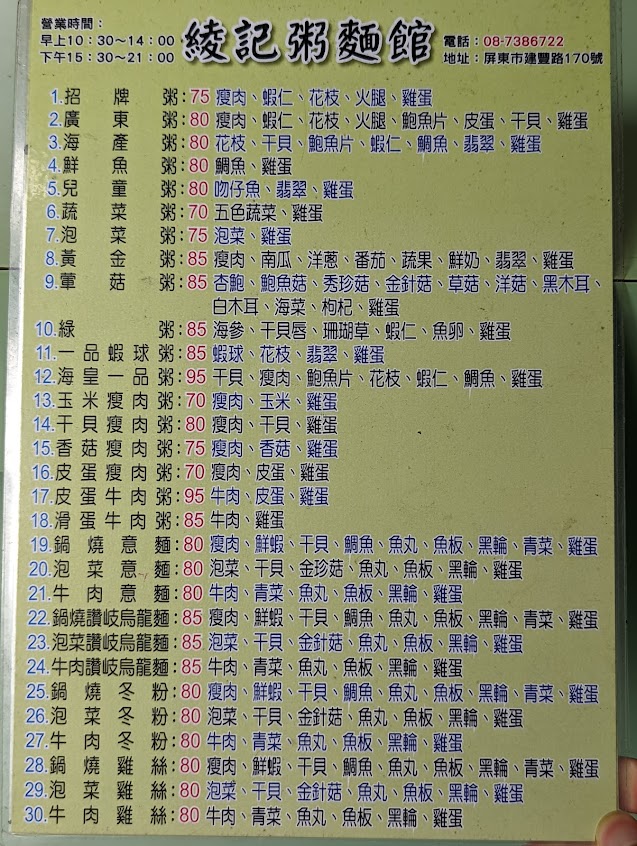 營業時間：
早上10：30～14：00
下午15：30～21：00
綾記粥麵館
電話：08-7386722
地址：屏東市建豐路170號
1.招牌粥：75 瘦肉、蝦仁、花枝、火腿、雞蛋
2.廣東粥：80 瘦肉、蝦仁、花枝、火腿、鮑魚片、皮蛋、干貝、雞蛋
3.海產粥：80 花枝、干貝、鮑魚片、蝦仁、鯛魚、翡翠、雞蛋
4.鮮魚粥：80 鯛魚、雞蛋
5.兒童粥：80 吻仔魚、翡翠、雞蛋
6.蔬菜粥：70 五色蔬菜、雞蛋
7.泡菜粥：75 泡菜、雞蛋
8.黃金粥：85 瘦肉、南瓜、洋蔥、番茄、蔬果、鮮奶、翡翠、雞蛋
9.蕈菇粥：85 杏鮑、鮑魚菇、秀珍菇、金針菇、草菇、洋菇、黑木耳、
白木耳、海菜、枸杞、雞蛋
10.綠粥：85 海參、干貝唇、珊瑚草、蝦仁、魚卵、雞蛋
11.一品蝦球粥：85 蝦球、花枝、翡翠、雞蛋
12.海皇一品粥：95 干貝、瘦肉、鮑魚片、花枝、蝦仁、鯛魚、雞蛋
13.玉米瘦肉粥：70 瘦肉、玉米、雞蛋
14.干貝瘦肉粥：80 瘦肉、干貝、雞蛋
15.香菇瘦肉粥：75 瘦肉、香菇、雞蛋
16.皮蛋瘦肉粥：70 瘦肉、皮蛋、雞蛋
17.皮蛋牛肉粥：95 牛肉、皮蛋、雞蛋
18.滑蛋牛肉粥：85 牛肉、雞蛋
19.鍋燒意麵：80 瘦肉、鮮蝦、干貝、鯛魚、魚丸、魚板、黑輪、青菜、雞蛋
20.泡菜意麵：80 泡菜、干貝、金珍菇、魚丸、魚板、黑輪、雞蛋
21.牛肉意麵：80 牛肉、青菜、魚丸、魚板、黑輪、雞蛋
22.鍋燒讚岐烏龍麵：85 瘦肉、鮮蝦、干貝、鯛魚、魚丸、魚板、黑輪、青菜、雞蛋
23.泡菜讚岐烏龍麵：85 泡菜、干貝、金針菇、魚丸、魚板、黑輪、雞蛋
24.牛肉讚岐烏龍麵：85 牛肉、青菜、魚丸、魚板、黑輪、雞蛋
25.鍋燒冬粉：80 瘦肉、鮮蝦、干貝、鯛魚、魚丸、魚板、黑輪、青菜、雞蛋
26.泡菜冬粉：80 泡菜、干貝、金針菇、魚丸、魚板、黑輪、雞蛋
27.牛肉冬粉：80 牛肉、青菜、魚丸、魚板、黑輪、雞蛋
28.鍋燒雞絲：80 瘦肉、鮮蝦、干貝、鯛魚、魚丸、魚板、黑輪、青菜、雞蛋
29.泡菜雞絲：80 泡菜、干貝、金針菇、魚丸、魚板、黑輪、雞蛋
30.牛肉雞絲：80 牛肉、青菜、魚丸、魚板、黑輪、雞蛋